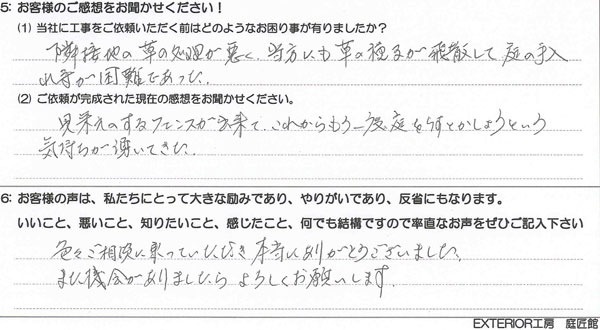 5: お客様のご感想をお聞かせください！
(1) 当社に工事をご依頼いただく前はどのようなお困り事が有りましたか？
隣接地の草の処理が悪く、当方にも草の種子が飛散して庭の手入
れ等が困難であった。
(2) ご依頼が完成された現在の感想をお聞かせください。
見栄えのするフェンスが出来て、これからもう一度庭をなんとかしようという
気持ちが湧いてきた。
6: お客様の声は、私たちにとって大きな励みであり、やりがいであり、反省にもなります。
いいこと、悪いこと、知りたいこと、感じたこと、何でも結構ですので率直なお声をぜひご記入下さい
色々ご相談に乗っていただき本当にありがとうございました。
また機会がありましたらよろしくお願いします。
EXTERIOR工房 庭匠館